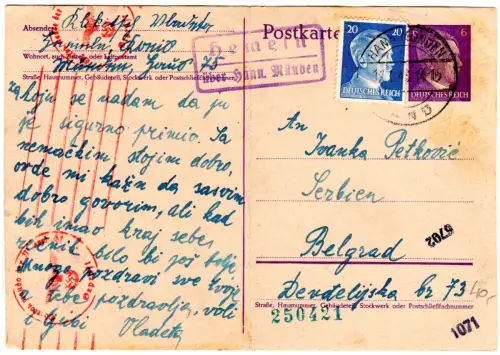 Postkarte
Absender:
Wohnort, auch Zustell- oder Leitpostamt
Straße, Hausnummer, Gebäudeteil, Stockwerk oder Postschließfachnummer
Hemeln
über Hann. Münden
20
20
DEUTSCHES REICH
6
DEUTSCHES REICH
koju se nadam da ju
je sigurno primio. Sa
nemačkim stojim dobro,
ovde mi kažu da sasvim
dobro govorim, ali kad
bih imao kraj sebe
rečnik bilo bi još bolje.
Mnogo pozdravi sve tvoje
a tebe pozdravlja, voli
i ljubi Vladeta
An
Ivanka Petković
Serbien
Belgrad
Đevđelijska br 73
Straße, Hausnummer, Gebäudeteil, Stockwerk oder Postschließfachnummer
250421
6702
1071